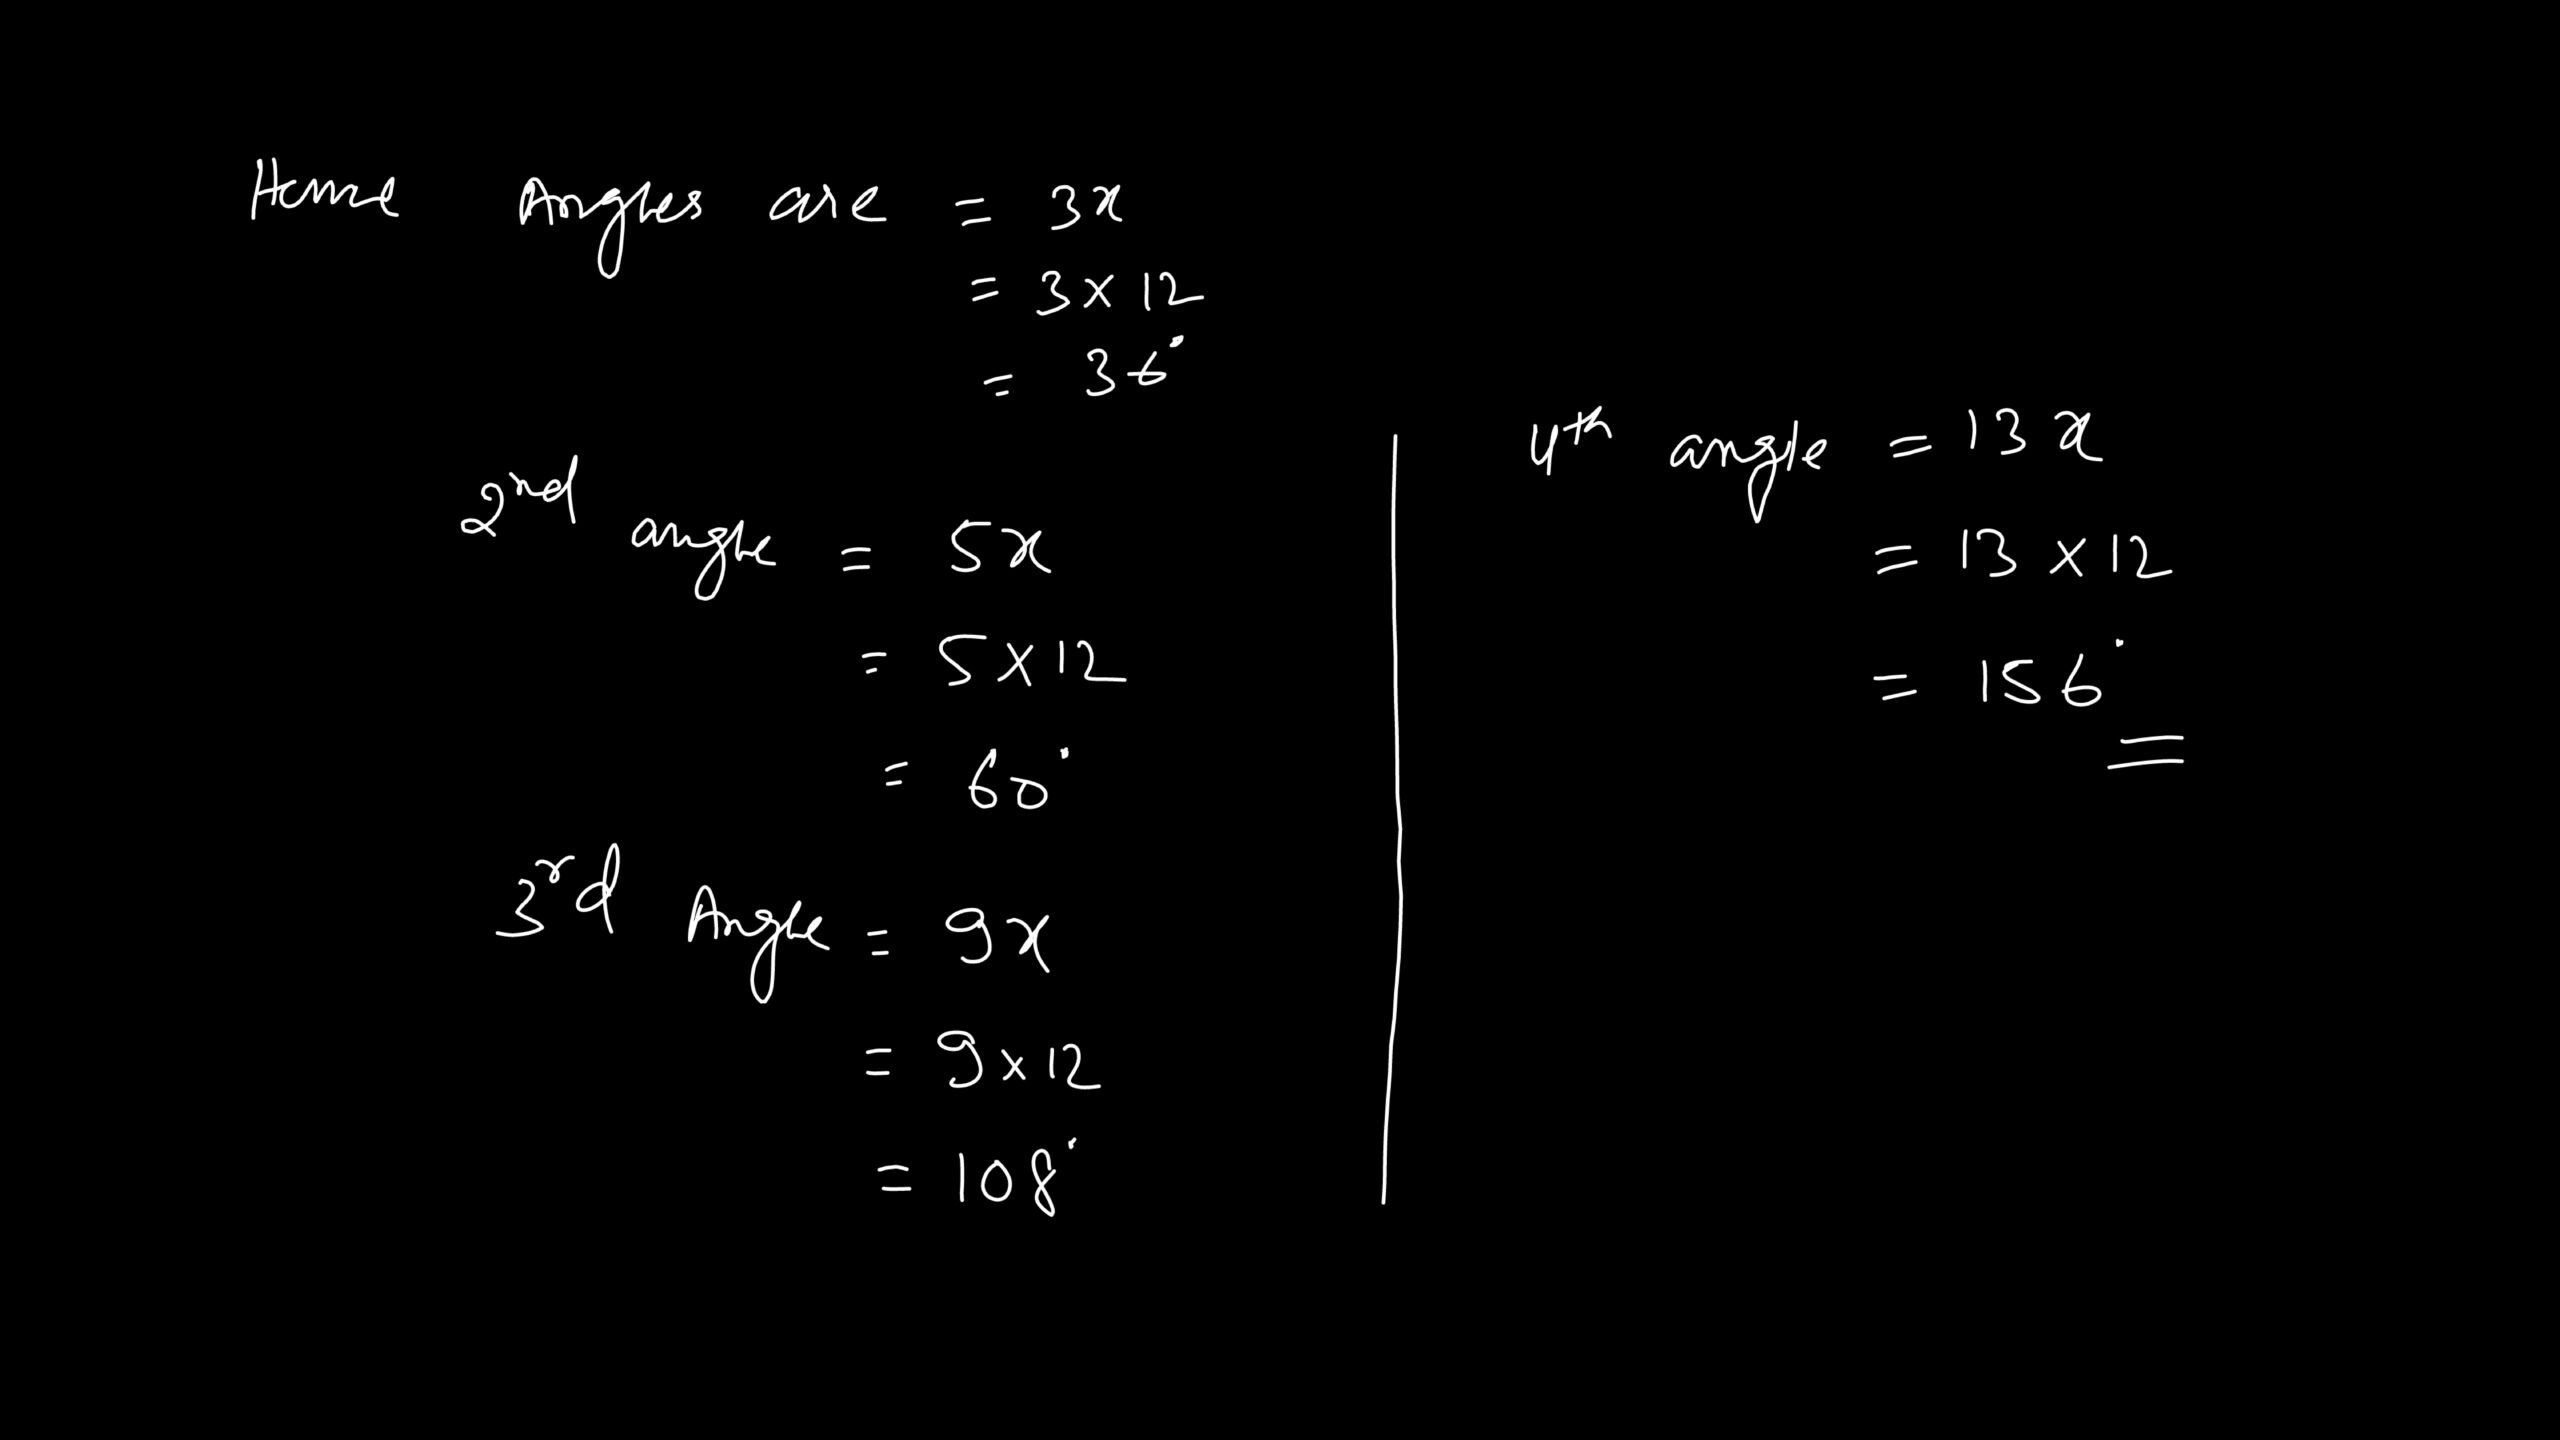 Hence Angles are = 3x
= 3 x 12
= 36°
2nd angle = 5x
= 5 x 12
= 60°
3rd Angle = 9x
= 9 x 12
= 108°
4th angle = 13x
= 13 x 12
= 156°